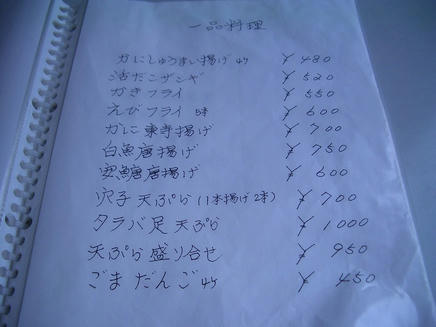 一品料理
かにしゅうまい揚げ 4ケ ¥480
活だこザンギ ¥520
かきフライ ¥550
えびフライ 5本 ¥600
かに東寺揚げ ¥700
白魚唐揚げ ¥750
鮟鱇唐揚げ ¥600
穴子天ぷら(1本揚げ2本) ¥700
タラバ足天ぷら ¥1000
天ぷら盛り合せ ¥950
ごまだんご 4ケ ¥450